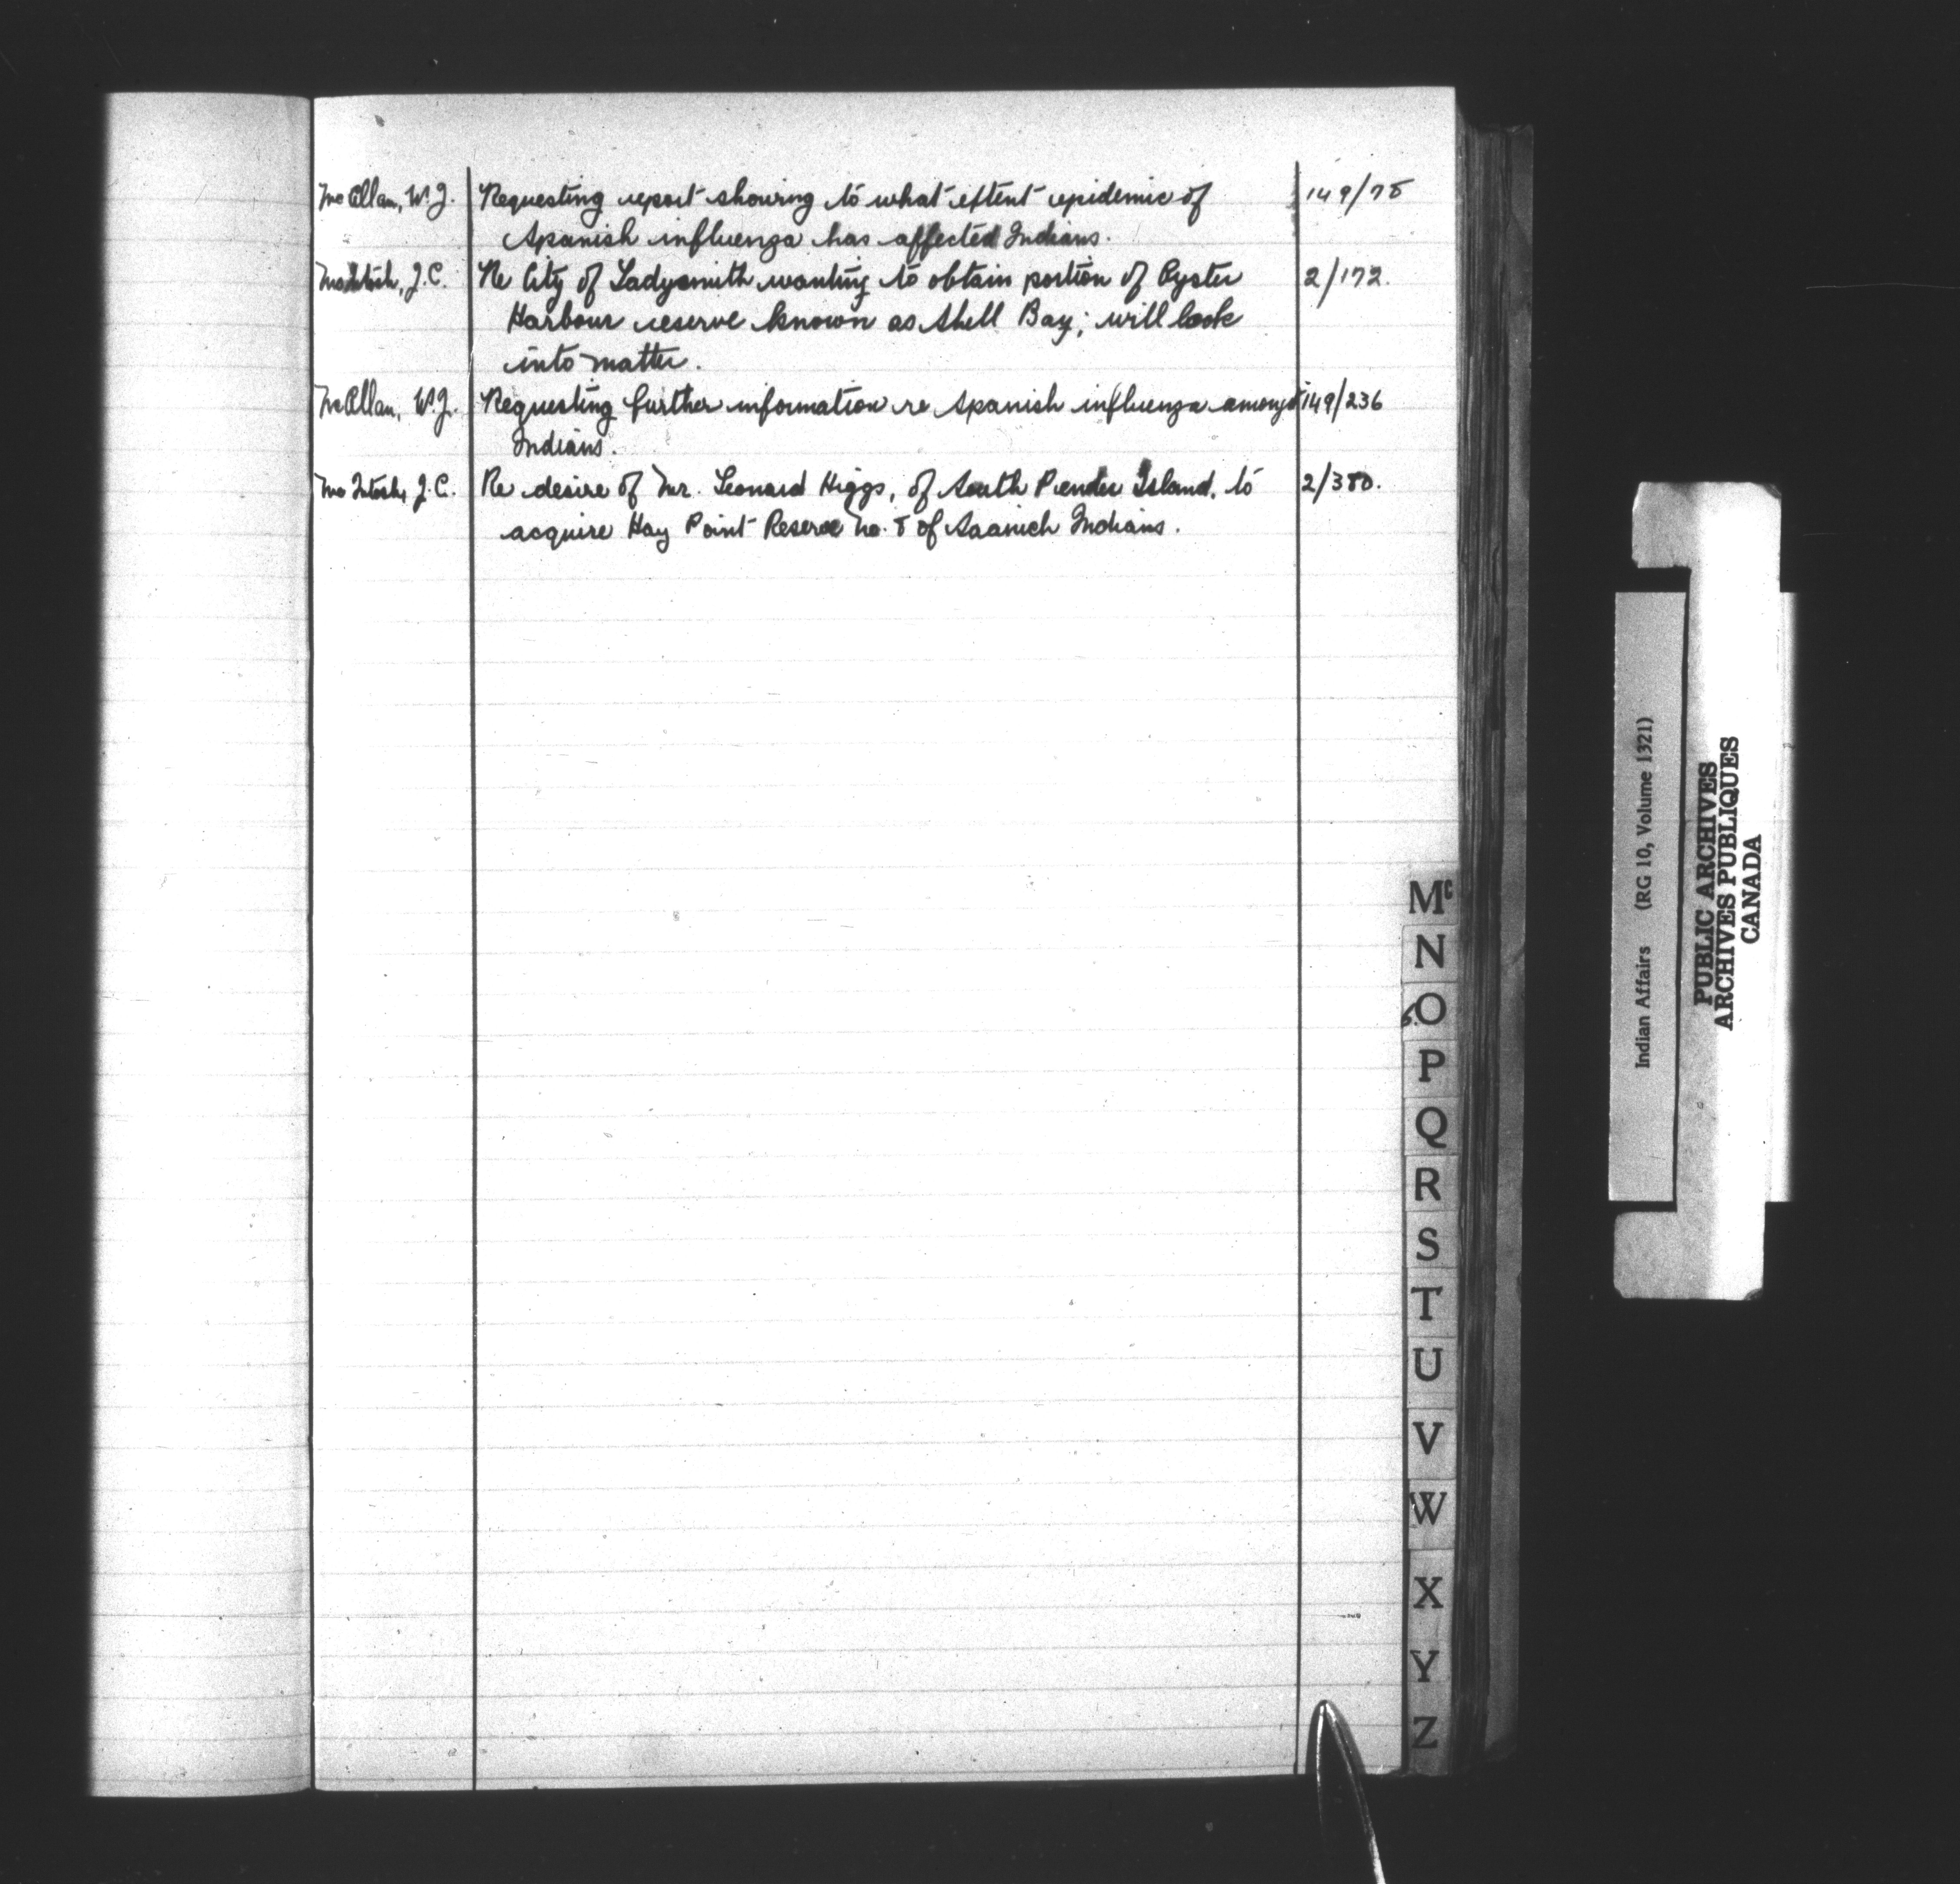 McAllan, W.J. Requesting report showing to what extent epidemic of 149/78
Spanish influenza has affected Indians.
McIntosh, J.C. Re City of Ladysmith wanting to obtain portion of Oyster 2/172.
Harbour reserve known as Shell Bay; will look
into matter.
McAllan, W.J. Requesting further information re Spanish influenza amongst 149/236
Indians.
McIntosh, J.C. Re desire of Mr. Leonard Higgs, of South Pender Island, to 2/380.
acquire Hay Point Reserve No. 8 of Saanich Indians.
Mc
N
O
P
Q
R
S
T
U
V
W
X
Y
Z
Indian Affairs (RG 10, Volume 1321)
PUBLIC ARCHIVES
ARCHIVES PUBLIQUES
CANADA